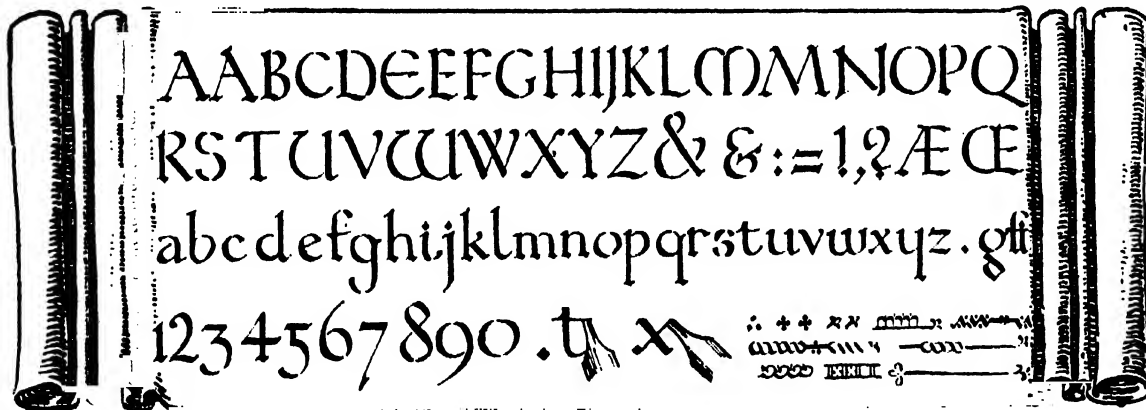 AABCDEEFGHIJKLMMNOPQ
RSTUVWWXYZ& & := !,? ÆŒ
abcdefghijklmnopqrstuvwxyz . gff
1234567890 . t x